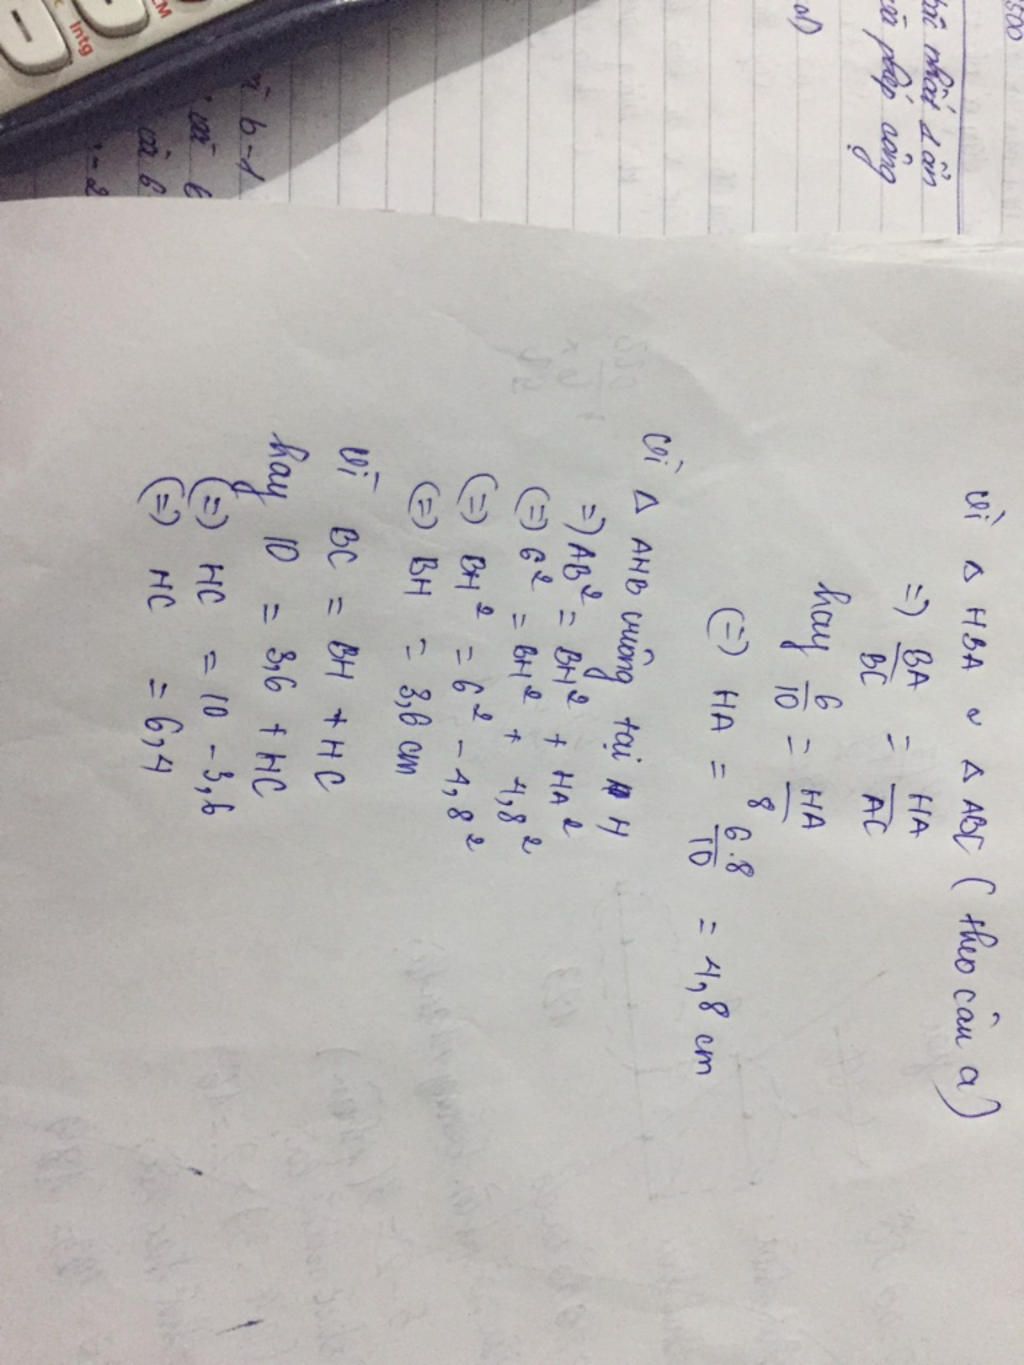 Vì Δ HBA ∽ Δ ABC (theo câu a)
=) BA/BC = HA/AC
hay 6/10 = HA/8
(=) HA = 6.8/10 = 4,8 cm
Vì Δ AHB vuông tại H
=) AB² = BH² + HA²
(=) 6² = BH² + 4,8²
(=) BH² = 6² - 4,8²
(=) BH = 3,6 cm
Vì BC = BH + HC
hay 10 = 3,6 + HC
(=) HC = 10 - 3,6
(=) HC = 6,4
500
nhất 1 ần
phép cộng
d)
b-1
và b
-2
Intg